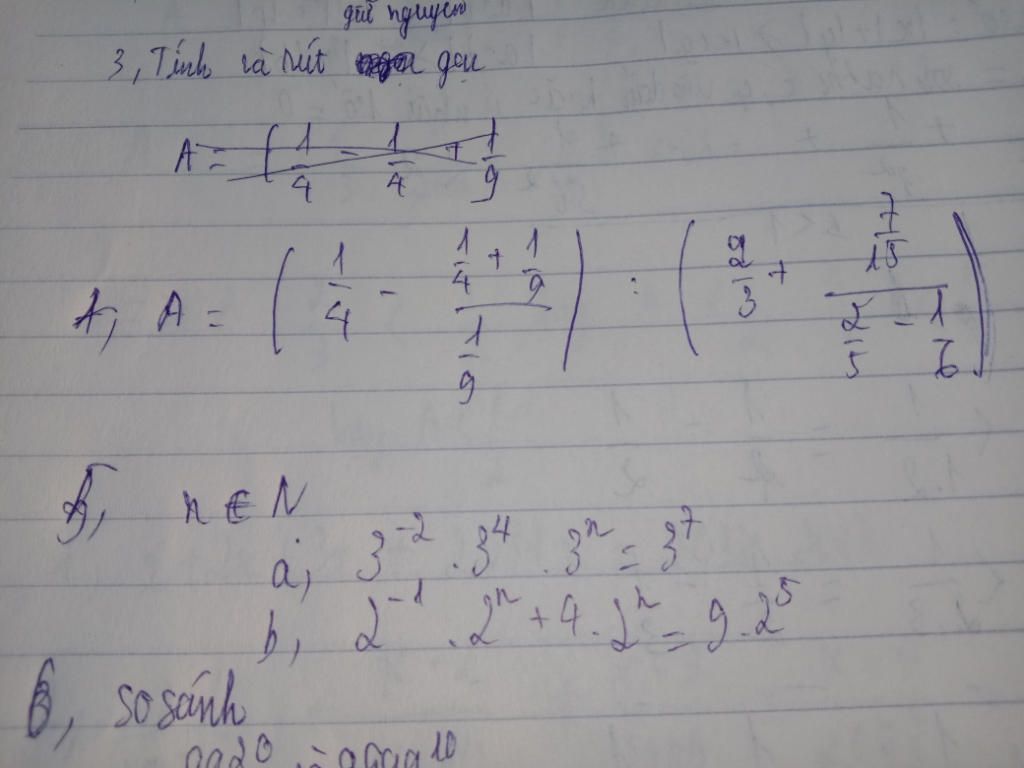 giữ nguyên
3, Tính và rút gọn
A = ( 1/4 - 1/4 + 1/9
A, A = ( 1/4 - (1/4 + 1/9)/(1/9) ) : ( 2/3 + (7/15)/(2/5 - 1/6) )
5, n ∈ N
a, 3^-2 . 3^4 . 3^n = 3^7
b, 2^-1 . 2^n + 4 . 2^n = 9 . 2^5
6, so sánh